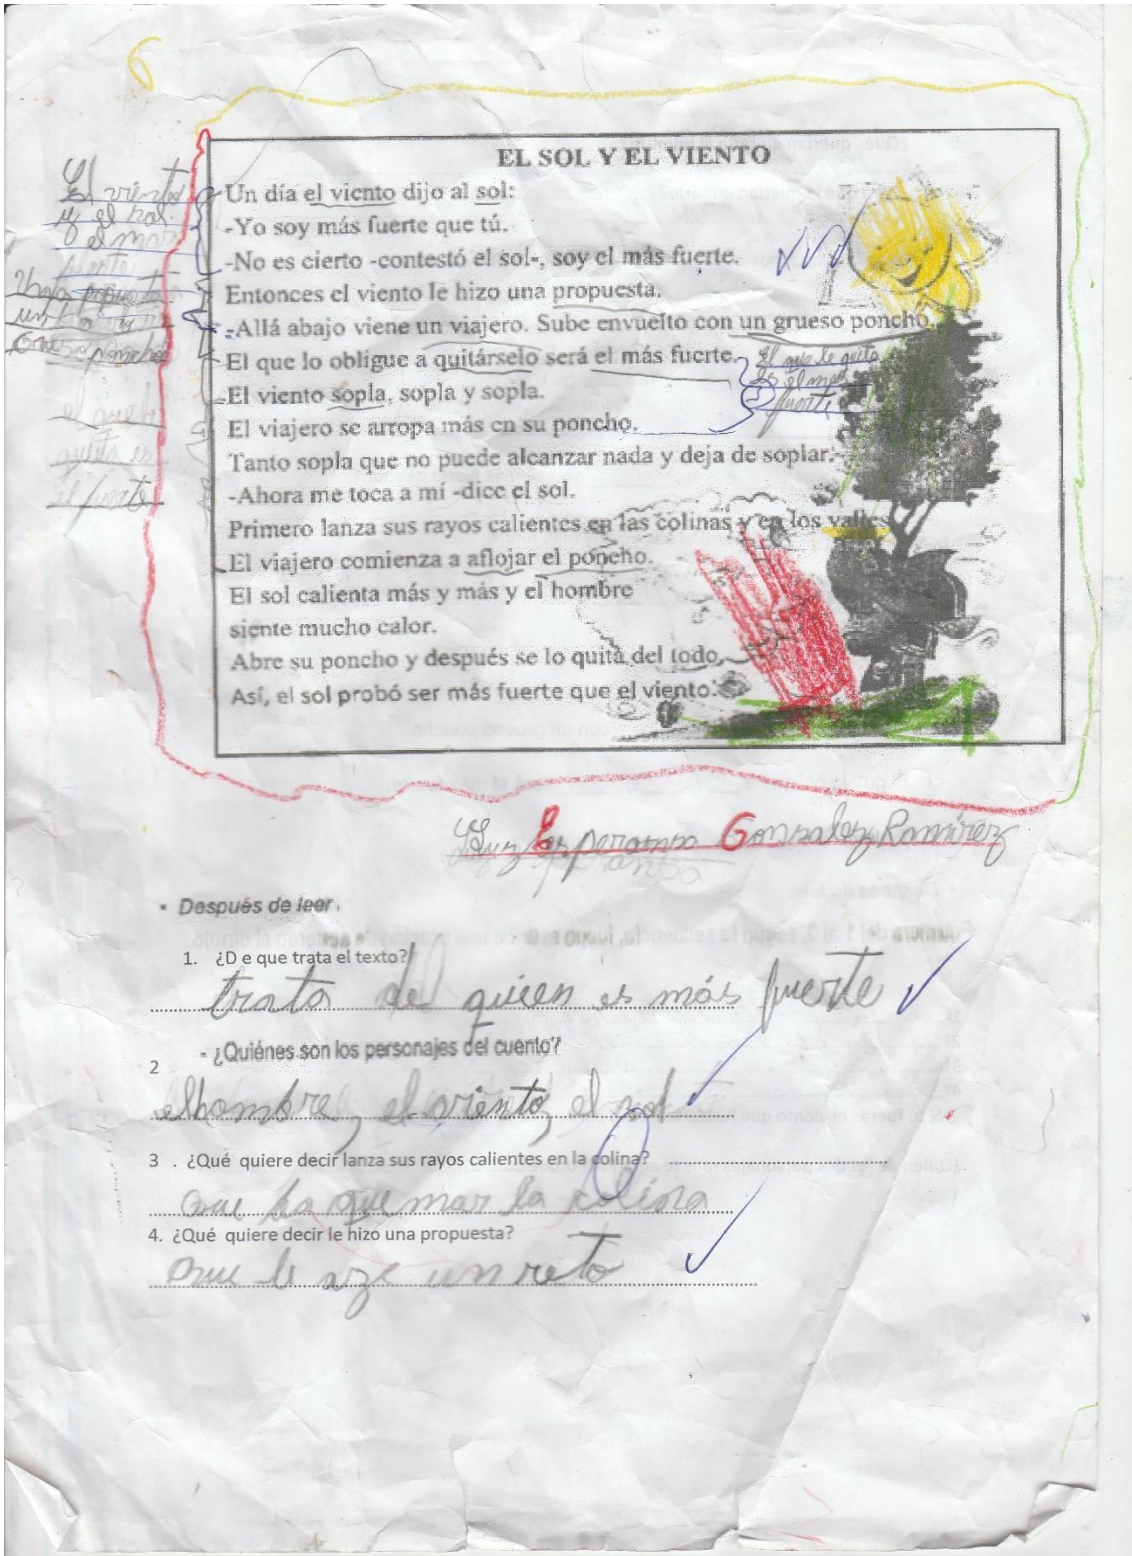 6
EL SOL Y EL VIENTO
Un día el viento dijo al sol:
-Yo soy más fuerte que tú.
-No es cierto -contestó el sol-, soy el más fuerte.
Entonces el viento le hizo una propuesta.
-Allá abajo viene un viajero. Sube envuelto con un grueso poncho.
El que lo obligue a quitárselo será el más fuerte.
El viento sopla, sopla y sopla.
El viajero se arropa más en su poncho.
Tanto sopla que no puede alcanzar nada y deja de soplar.
-Ahora me toca a mí -dice el sol.
Primero lanza sus rayos calientes en las colinas y en los valles
El viajero comienza a aflojar el poncho.
El sol calienta más y más y el hombre
siente mucho calor.
Abre su poncho y después se lo quita del todo,
Así, el sol probó ser más fuerte que el viento.
El viento
y el sol.
el mas
fuerte
propuesta
poncho
el que le
quita es
el fuerte
El que le quita
es el mas
fuerte
Luz Esperanza Gonzalez Ramirez
anza
• Después de leer.
1. ¿D e que trata el texto?
trata del quien es más fuerte
2 - ¿Quiénes son los personajes del cuento?
el hombre, el viento, el sol
3 . ¿Qué quiere decir lanza sus rayos calientes en la colina?
que la quemar la colina
4. ¿Qué quiere decir le hizo una propuesta?
que le aze un reto